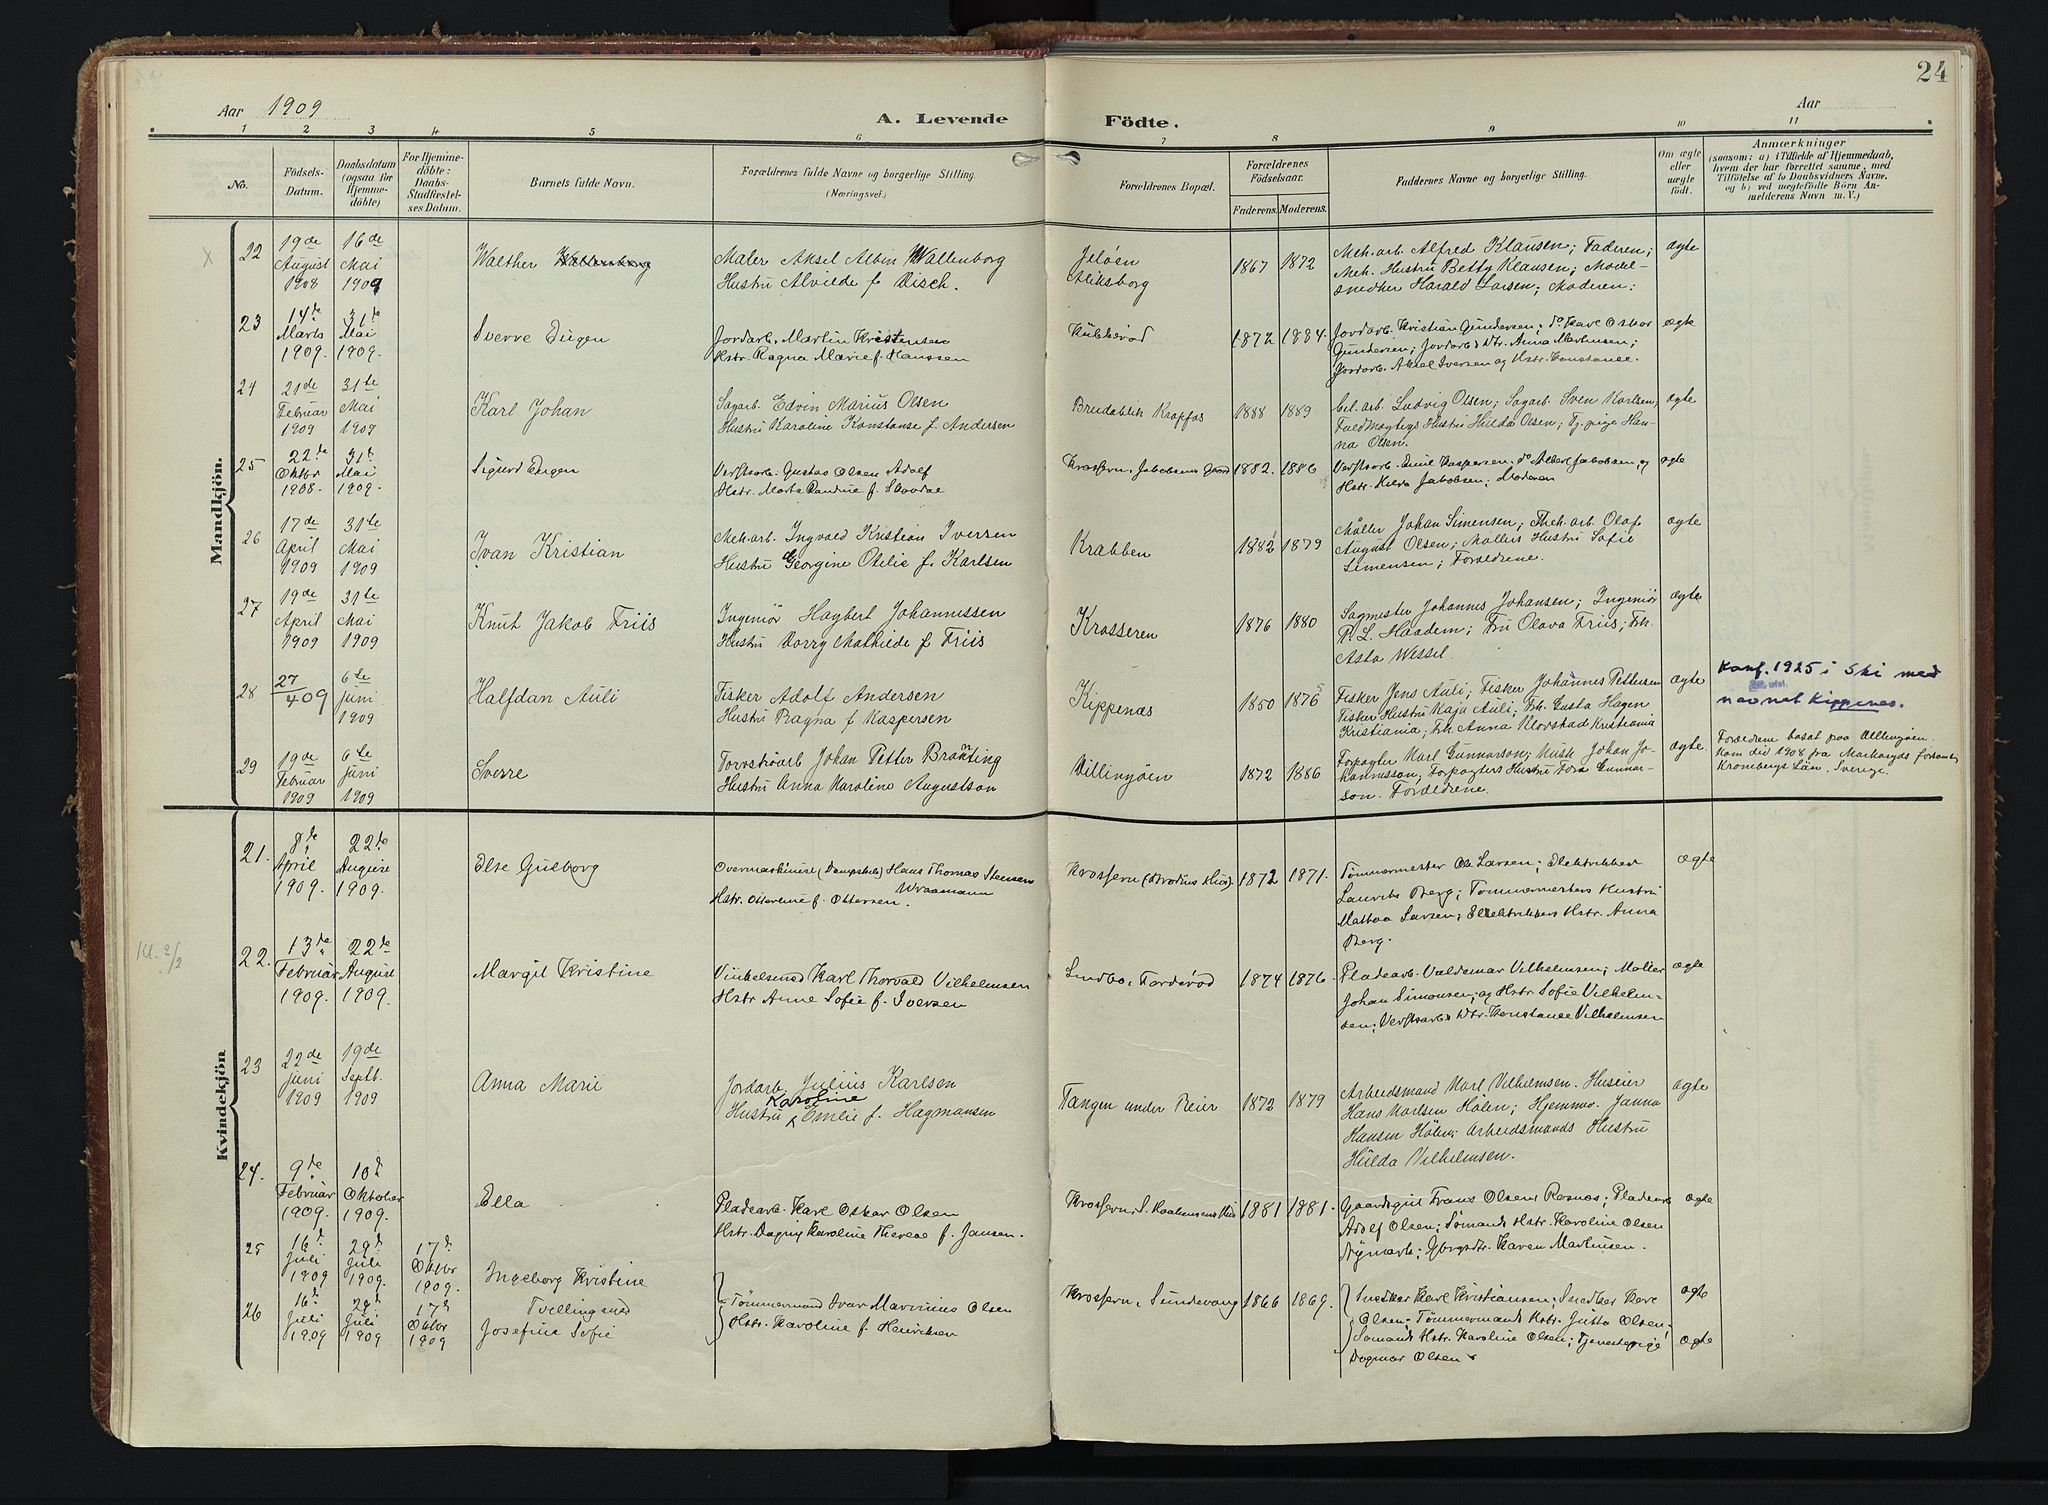 24
Aar 1909
Aar
A. Levende Födte.
1 2 3 4 5 6 7 8 9 10 11
No.
Födsels-
Datum.
Daabsdatum
(ogsaa for
Hjemme-
döbte)
For Hjemme-
döbte:
Daabs-
Stadfæstel-
ses Datum.
Barnets fulde Navn.
Forældrenes fulde Navne og borgerlige Stilling.
(Næringsvei.)
Forældrenes Bopæl.
Forældrenes
Födselsaar.
Faderens. Moderens.
Faddernes Navne og borgerlige Stilling.
Om ægte
eller
uægte
födt.
Anmærkninger
(saasom: a) i Tilfælde af Hjemmedaab,
hvem der har forrettet samme, med
Tilföielse af to Daabsvidners Navne,
og b) ved uegtefödte Börn An-
melderens Navn m. V.)
Mandkjön.
22
19de August 1908
16de Mai 1909
Walther Wallenborg
Maler Aksel Albin Wallenborg
Hustru Alvilde f. Disch.
Jeløen
1867 1872
Mek.arb. Alfred Klausen; Faderen;
Mek. Hustru Betty Klausen; Model-
snedker Harald Larsen; Moderen;
ægte
23
14de Marts 1909.
31te Mai 1909.
Sverre Eugen
Jordarb. Martin Kristensen
Hstr. Ragna Marie f. Hanssen
Kubberød
1872 1884.
Jordarb. Kristian Gundersen; do Karl Oskar
Gundersen; Jordarbs Dtr. Anna Martinsen;
Jordarb. Aksel Iversen og Hstr. Constance.
ægte
24
21de Februar 1909
31te Mai 1909
Karl Johan
Sagarb. Edvin Marius Olsen
Hustru Karoline Konstanse f. Andersen
Brudeblik Krapfos
1888 1889
Cel. arb. Ludvig Olsen; Sagarb. Sven Karlsen;
Fuldmægtigs Hustru Hilda Olsen; Tj. pige Han-
na Olsen.
ægte
25
22de Oktbr 1908.
31t Mai 1909.
Sigurd Eugen
Verftsarb. Gustav Olsen Adolf
Hstr. Marta Randine f.
Krossern, Jakobsens Gaard
1882. 1886
Verftsarb. Emil Kaspersen; do Albert Jakobsen, og
Hstr. Hilda Jakobsen; Moderen
ægte
26
17de April 1909
31te Mai 1909
Ivan Kristian
Mek.arb. Ingvald Kristian Iversen
Hustru Georgine Otilie f. Karlsen
Krabben
1882 1879
Møller Johan Simensen; Mek. arb. Olaf
August Olsen; Møllers Hustru Sofie
Simensen; Forældrene.
ægte
27
19de April 1909
31te Mai 1909
Knut Jakob Friis
Ingeniør Hagbert Johannessen
Hustru Dorry Mathilde f. Friis
Krosseren
1876 1880
Sagmester Johannes Johansen; Ingeniør
P. L. Haadem; Fru Olava Friis; Frk.
Asta Wessel.
ægte
28
27/4 09
6te Juni 1909
Halfdan Auli
Fisker Adolf Andersen
Hustru Ragna f. Kaspersen
Kippenæs
1850 1876
Fisker Jens Auli; Fisker Johannes Pettersen
Fisker Hustru Kaja Auli; Frk. Gusta Hagen
Kristiania; Frk. Anna Klovstad Kristiania
ægte
Konf. 1925 i Ski med
navnet Kippenes.
29
19de Februar 1909
6te Juni 1909
Sverre
Torvstrøarb. Johan Petter Branting
Hustru Anna Karoline Augustson
Villingøen
1872 1886
Forpagter Karl Gunnarson; Musk. Johan Jo-
hannesson; Forpagters Hustru Tora Gunnar-
son. Forældrene.
ægte.
Forældrene bosat paa Villingøen.
Kom did 1908 fra Markaryds församl.
Kronobergs Län. Sverige.
Kvindekjön
21.
8de April 1909.
22de August 1909.
Else Gulborg
Overmaskinist (Dampskib) Hans Thomas Stensen
Wraamann
Hstr. Otterline f. Ottersen.
Krossern (Brodins Hus).
1872 1871.
Tømmermester Ole Larsen; Elektriker
Laurits Berg; Tømmermesters Hustru
Mathea Larsen; Elektrikers Hstr. Anna
Berg.
ægte
Kl. 2/2
22.
13de Februar 1909.
22de August 1909.
Margit Kristine
Vinkelsmed Karl Thorvald Vilhelmsen
Hstr. Anne Sofie f. Iversen
Lindbo, Tørderød
1874 1876.
Pladearb. Valdemar Vilhelmsen; Møller
Johan Simonsen; og Hstr. Sofie Vilhelm-
sen; Verftsarbs Dtr. Konstanse Vilhelmsen
ægte
23
22de Juni 1909
19de Septb. 1909
Anna Marie
Jordarb. Julius Karlsen
Karoline
Hustru Emelie f. Hagmansen
Tangen under Reier
1872 1879
Arbeidsmand Karl Vilhelmsen. Huseier
Hans Karlsen Hølen; Hjemmev. Janna
Hansen Hølen; Arbeidsmands Hustru
Hulda Vilhelmsen.
ægte
24.
9de Februar 1909.
10d Oktober 1909.
Ella
Pladearb. Karl Oskar Olsen
Hstr. Dagny Karoline Therese f. Jansen.
Krossern,
1881 1881.
Gaardsgut Frans Olsen Rosnæs; Pladearb.
Adolf Olsen; Sømands Hstr. Karoline Olsen
Nymark; Gbrgsdtr. Karen Martinsen.
ægte
25
16d Juli 1909
29d Juli 1909.
17d Oktbr 1909.
Ingeborg Kristine
Tvilling med
26
16d Juli 1909
29d Juli 1909
17d Oktbr 1909
Josefine Sofie
Tømmermand Ivar Marinius Olsen
Hstr. Karoline f. Henriksen
Krossern, Sundevang
1866 1869.
Snedker Karl Kristiansen; Snedker Karl
Olsen; Tømmermands Hstr. Jutta Olsen;
Sømands Hstr. Karoline Olsen; Tjenestepige
Dagmar Olsen.
ægte
ægte